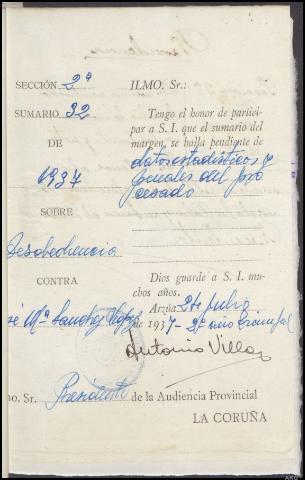 SECCIÓN 2ª
SUMARIO 32
DE
1937
SOBRE
Desobediencia
CONTRA
sé Mª Sanchez
ILMO. Sr.:
Tengo el honor de partici-
par a S. I. que el sumario del
margen, se halla pendiente de
datos estadísticos y
penales del pro
cesado
Dios guarde a S. I. mu-
chos años.
Arzúa 24 Julio
de 1937 - 2º año triunfal
Antonio Villar
mo. Sr. Presidente de la Audiencia Provincial
LA CORUÑA